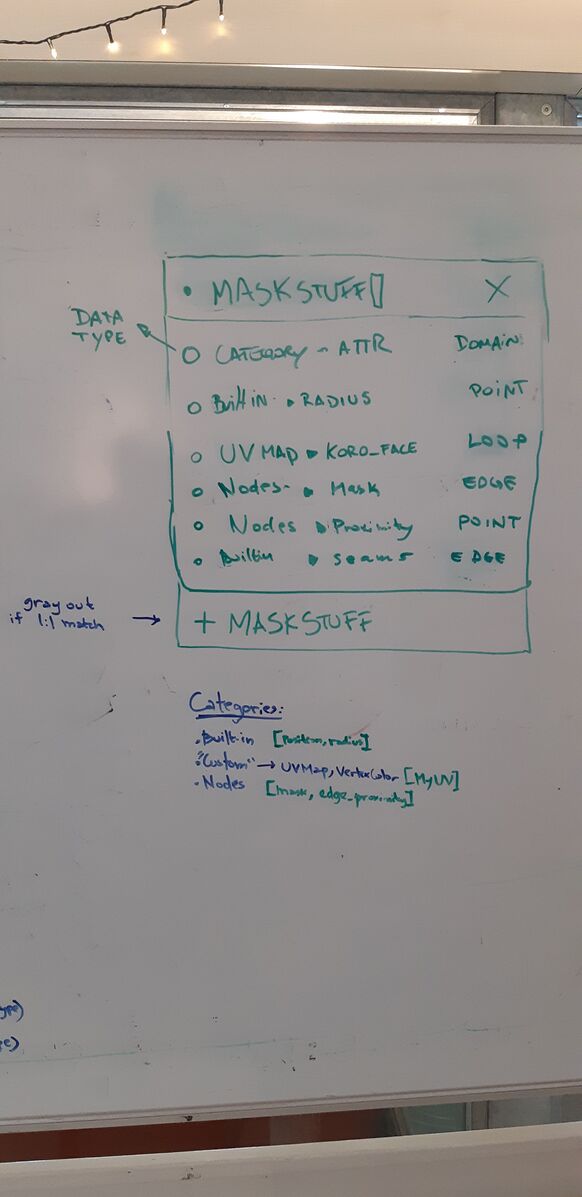 • MASKSTUFF[] X
DATA
TYPE
○ CATEGORY - ATTR DOMAIN
○ Built in ▸ RADIUS POINT
○ UV MAP ▸ KORO_FACE LOOP
○ Nodes- ▸ Mask EDGE
○ Nodes ▸ Proximity POINT
○ Builtin ▸ seams EDGE
gray out
if 1:1 match →
+ MASKSTUFF
Categories:
• Built-in [Position, radius]
• "Custom" → UVMap, VertexColor [MyUV]
• Nodes [mask, edge_proximity]